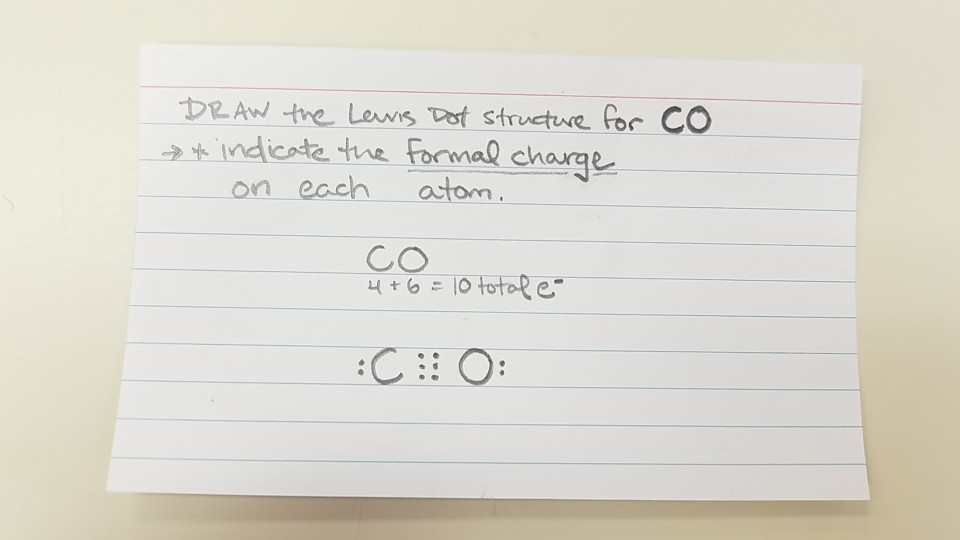 DRAW the Lewis Dot structure for CO
→ * indicate the formal charge
on each atom.
CO
4 + 6 = 10 total e⁻
:C ⫶⫶ O: